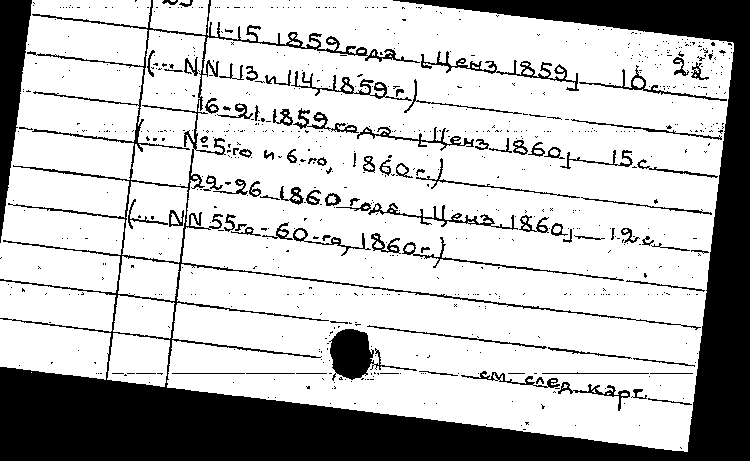 2а
11-15. 1859 года. [Ценз. 1859] 10 с.
(... NN 113 и 114, 1859 г.)
16-21. 1859 года. [Ценз. 1860]. 15 с.
(... № 5-го и 6-го, 1860 г.)
22-26. 1860 года. [Ценз. 1860] 12 с.
(... NN 55го-60-го, 1860 г.)
см. след. карт.